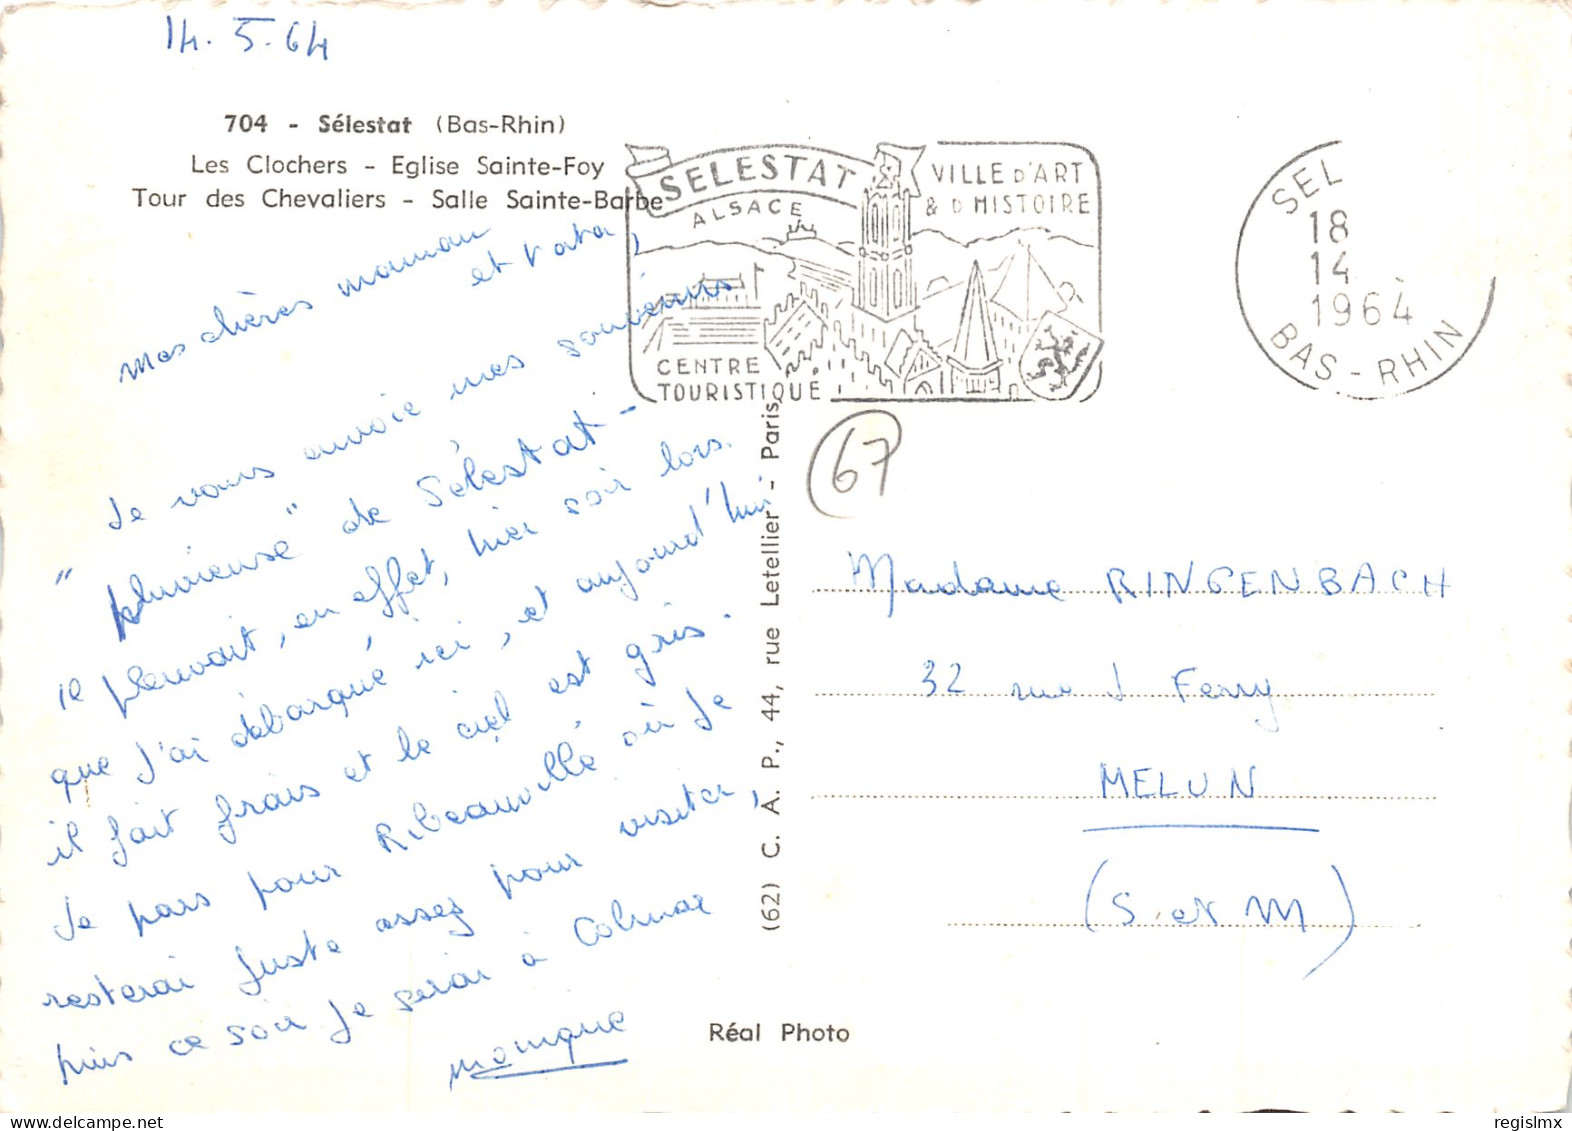 14.5.64
704 - Sélestat (Bas-Rhin)
Les Clochers - Eglise Sainte-Foy
Tour des Chevaliers - Salle Sainte-Barbe
SELESTAT
ALSACE
VILLE D'ART
& D HISTOIRE
CENTRE
TOURISTIQUE
SEL
18
14
1964
BAS-RHIN
67
Mes chères maman
et tata,
Je vous envoie mes souvenirs
"pluvieuse" de Sélestat -
Il pleuvait, en effet, hier soir lors.
que j'ai débarqué ici, et aujourd'hui
il fait frais et le ciel est gris.
Je pars pour Ribeauvillé où je
resterai juste assez pour visiter,
puis ce soir je serai à Colmar
Monique
(62) C. A. P., 44, rue Letellier - Paris
Madame RINGENBACH
32 rue J Ferry
MELUN
(S et M)
Réal Photo
regislmx